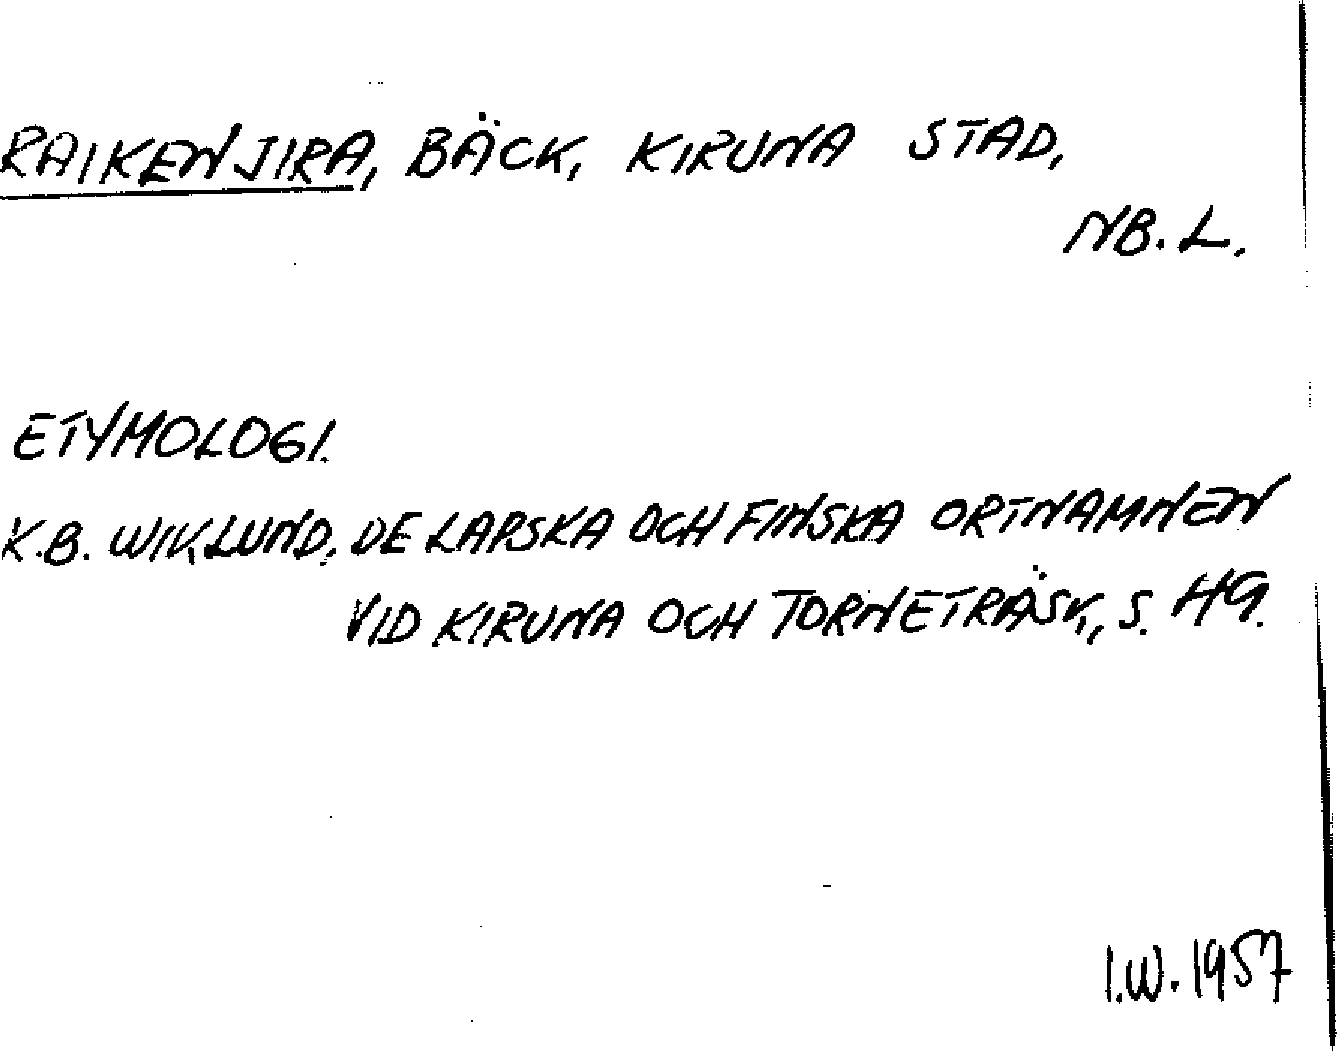 RAIKENJIRA, BÄCK, KIRUNA STAD,
NB. L.
ETYMOLOGI.
K.B. WIKLUND, DE LAPSKA OCH FINSKA ORTNAMNEN
VID KIRUNA OCH TORNETRÄSK, S. 49.
I.W. 1957